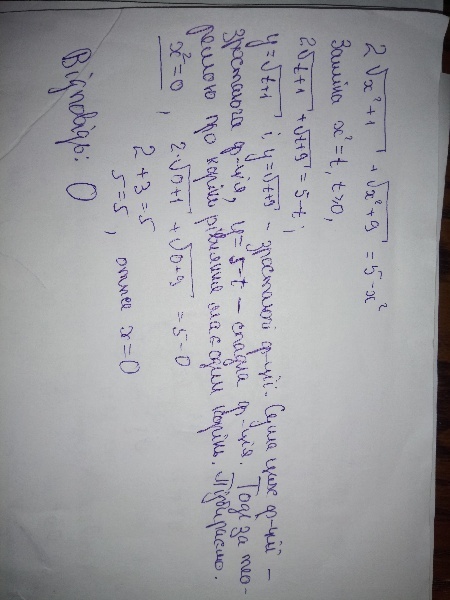 2√x²+1 + √x²+9 = 5-x²
Заміна x²=t, t≥0,
2√t+1 + √t+9 = 5-t;
y=√t+1 і y=√t+9 - зростаючі ф-ції. Сума цих ф-цій -
зростаюча ф-ція, y=5-t - спадна ф-ція. Тоді за тео-
ремою про корінь рівняння має один корінь. Підбираємо.
x²=0, 2√0+1 + √0+9 = 5-0
2+3=5
5=5, отже x=0
Відповідь: 0